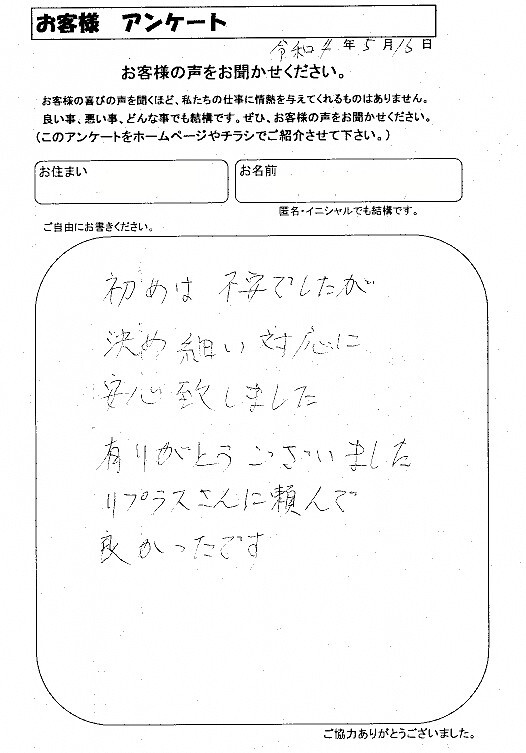 お客様 アンケート
令和4年5月16日
お客様の声をお聞かせください。
お客様の喜びの声を聞くほど、私たちの仕事に情熱を与えてくれるものはありません。
良い事、悪い事、どんな事でも結構です。ぜひ、お客様の声をお聞かせください。
(このアンケートをホームページやチラシでご紹介させて下さい。)
お住まい
お名前
匿名・イニシャルでも結構です。
ご自由にお書きください。
初めは 不安でしたが
決め細い対応に
安心致しました
有りがとうございました
リプラスさんに頼んで
良かったです
ご協力ありがとうございました。